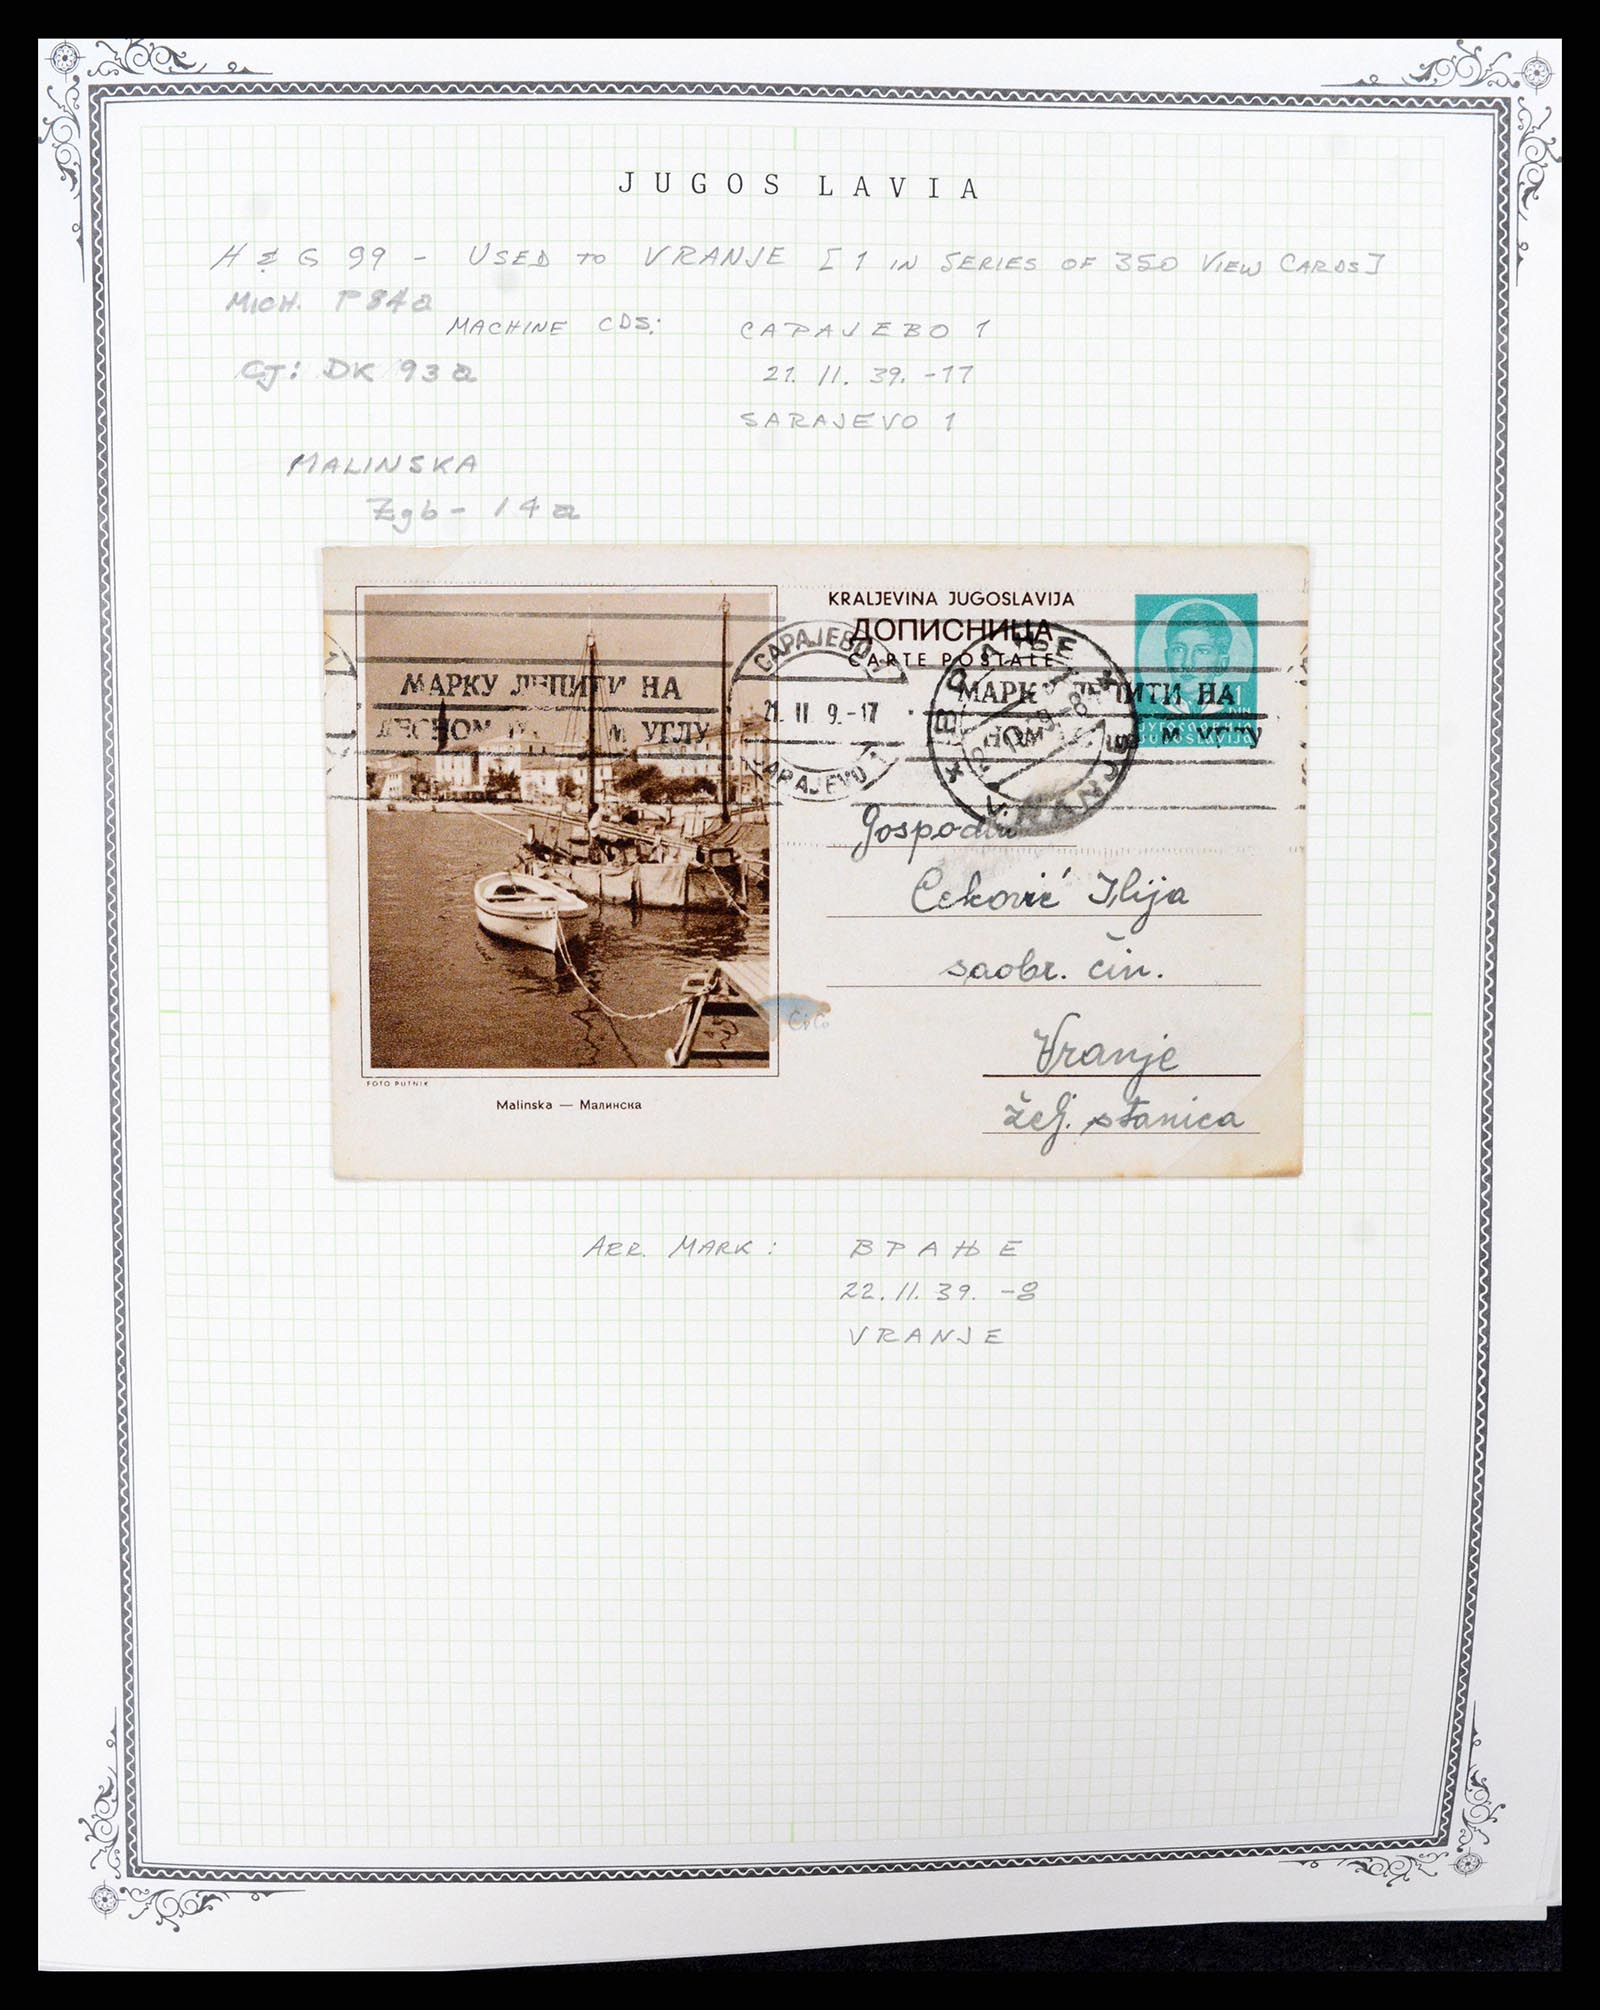 JUGOSLAVIA
H & G 99 - USED TO VRANJE [1 IN SERIES OF 350 VIEW CARDS]
MICH. P84a
MACHINE CDS: САРАЈЕВО 1
CJ: DK 93a
21. 11. 39. -17
SARAJEVO 1
MALINSKA
Zgb - 14a
KRALJEVINA JUGOSLAVIJA
ДОПИСНИЦА
CARTE POSTALE
САРАЈЕВО 1
МАРКУ ЛЕПИТИ НА
ДЕСНОМ УГЛУ
21. II 9.-17
SARAJEVO 1
МАРКУ ЛЕПИТИ НА
УГЛУ
JUGOSLAVIJA
Gospodin
Ceković Ilija
saobr. čin.
Vranje
želj. stanica
FOTO PUTNIK
Malinska — Малинска
ARR. MARK: ВРАЊЕ
22. 11. 39. -8
VRANJE